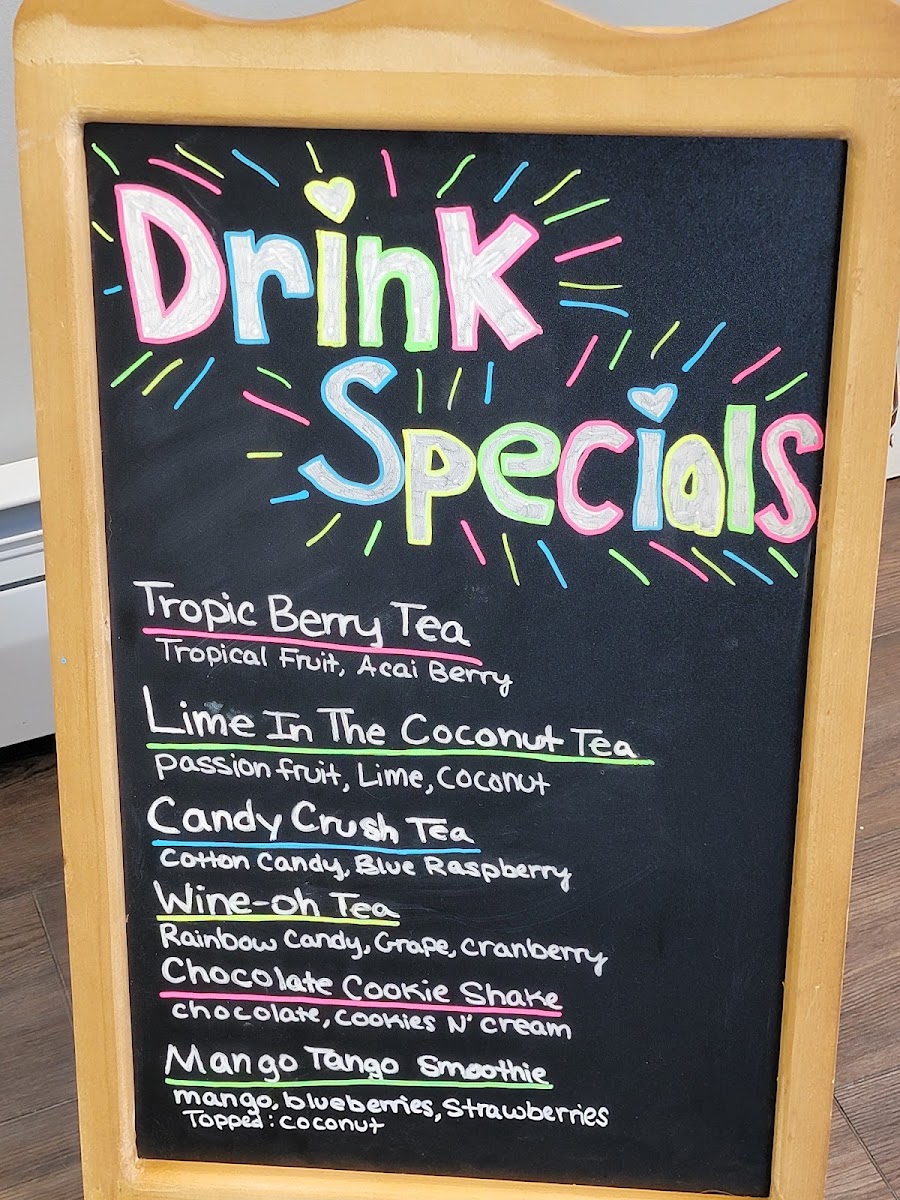 Drink
Specials
Tropic Berry Tea
Tropical Fruit, Acai Berry
Lime In The Coconut Tea
passion fruit, Lime, Coconut
Candy Crush Tea
Cotton Candy, Blue Raspberry
Wine-oh Tea
Rainbow Candy, Grape, Cranberry
Chocolate Cookie Shake
chocolate, cookies N' cream
Mango Tango Smoothie
mango, blueberries, strawberries
Topped: coconut